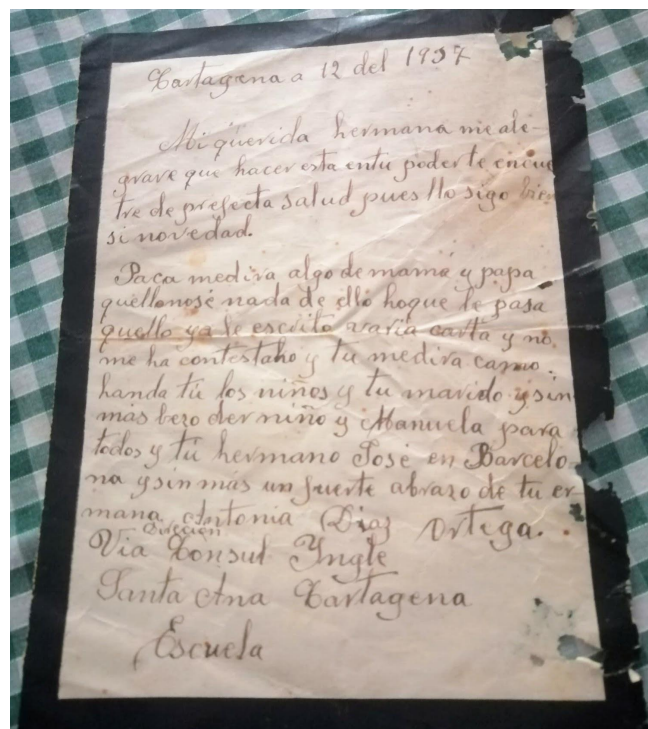 Cartagena a 12 del 1937
Mi querida hermana me ale-
grare que hacer esta entu poder te encue
tre de prefecta salud pues llo sigo bien
si novedad.
Paca medira algo de mama y papa
quellonosé nada de ello hoque le pasa
quello ya le escrito varia carta y no
me ha contestaho y tu medira como
handa tú los niños y tu marido y sin
mas bezo der niño y Manuela para
todos y tú hermano José en Barcelo-
na y sin más un fuerte abrazo de tu er-
mana Antonia Diaz Ortega.
Direccion
Via Consul Yngle
Santa Ana Cartagena
Escuela